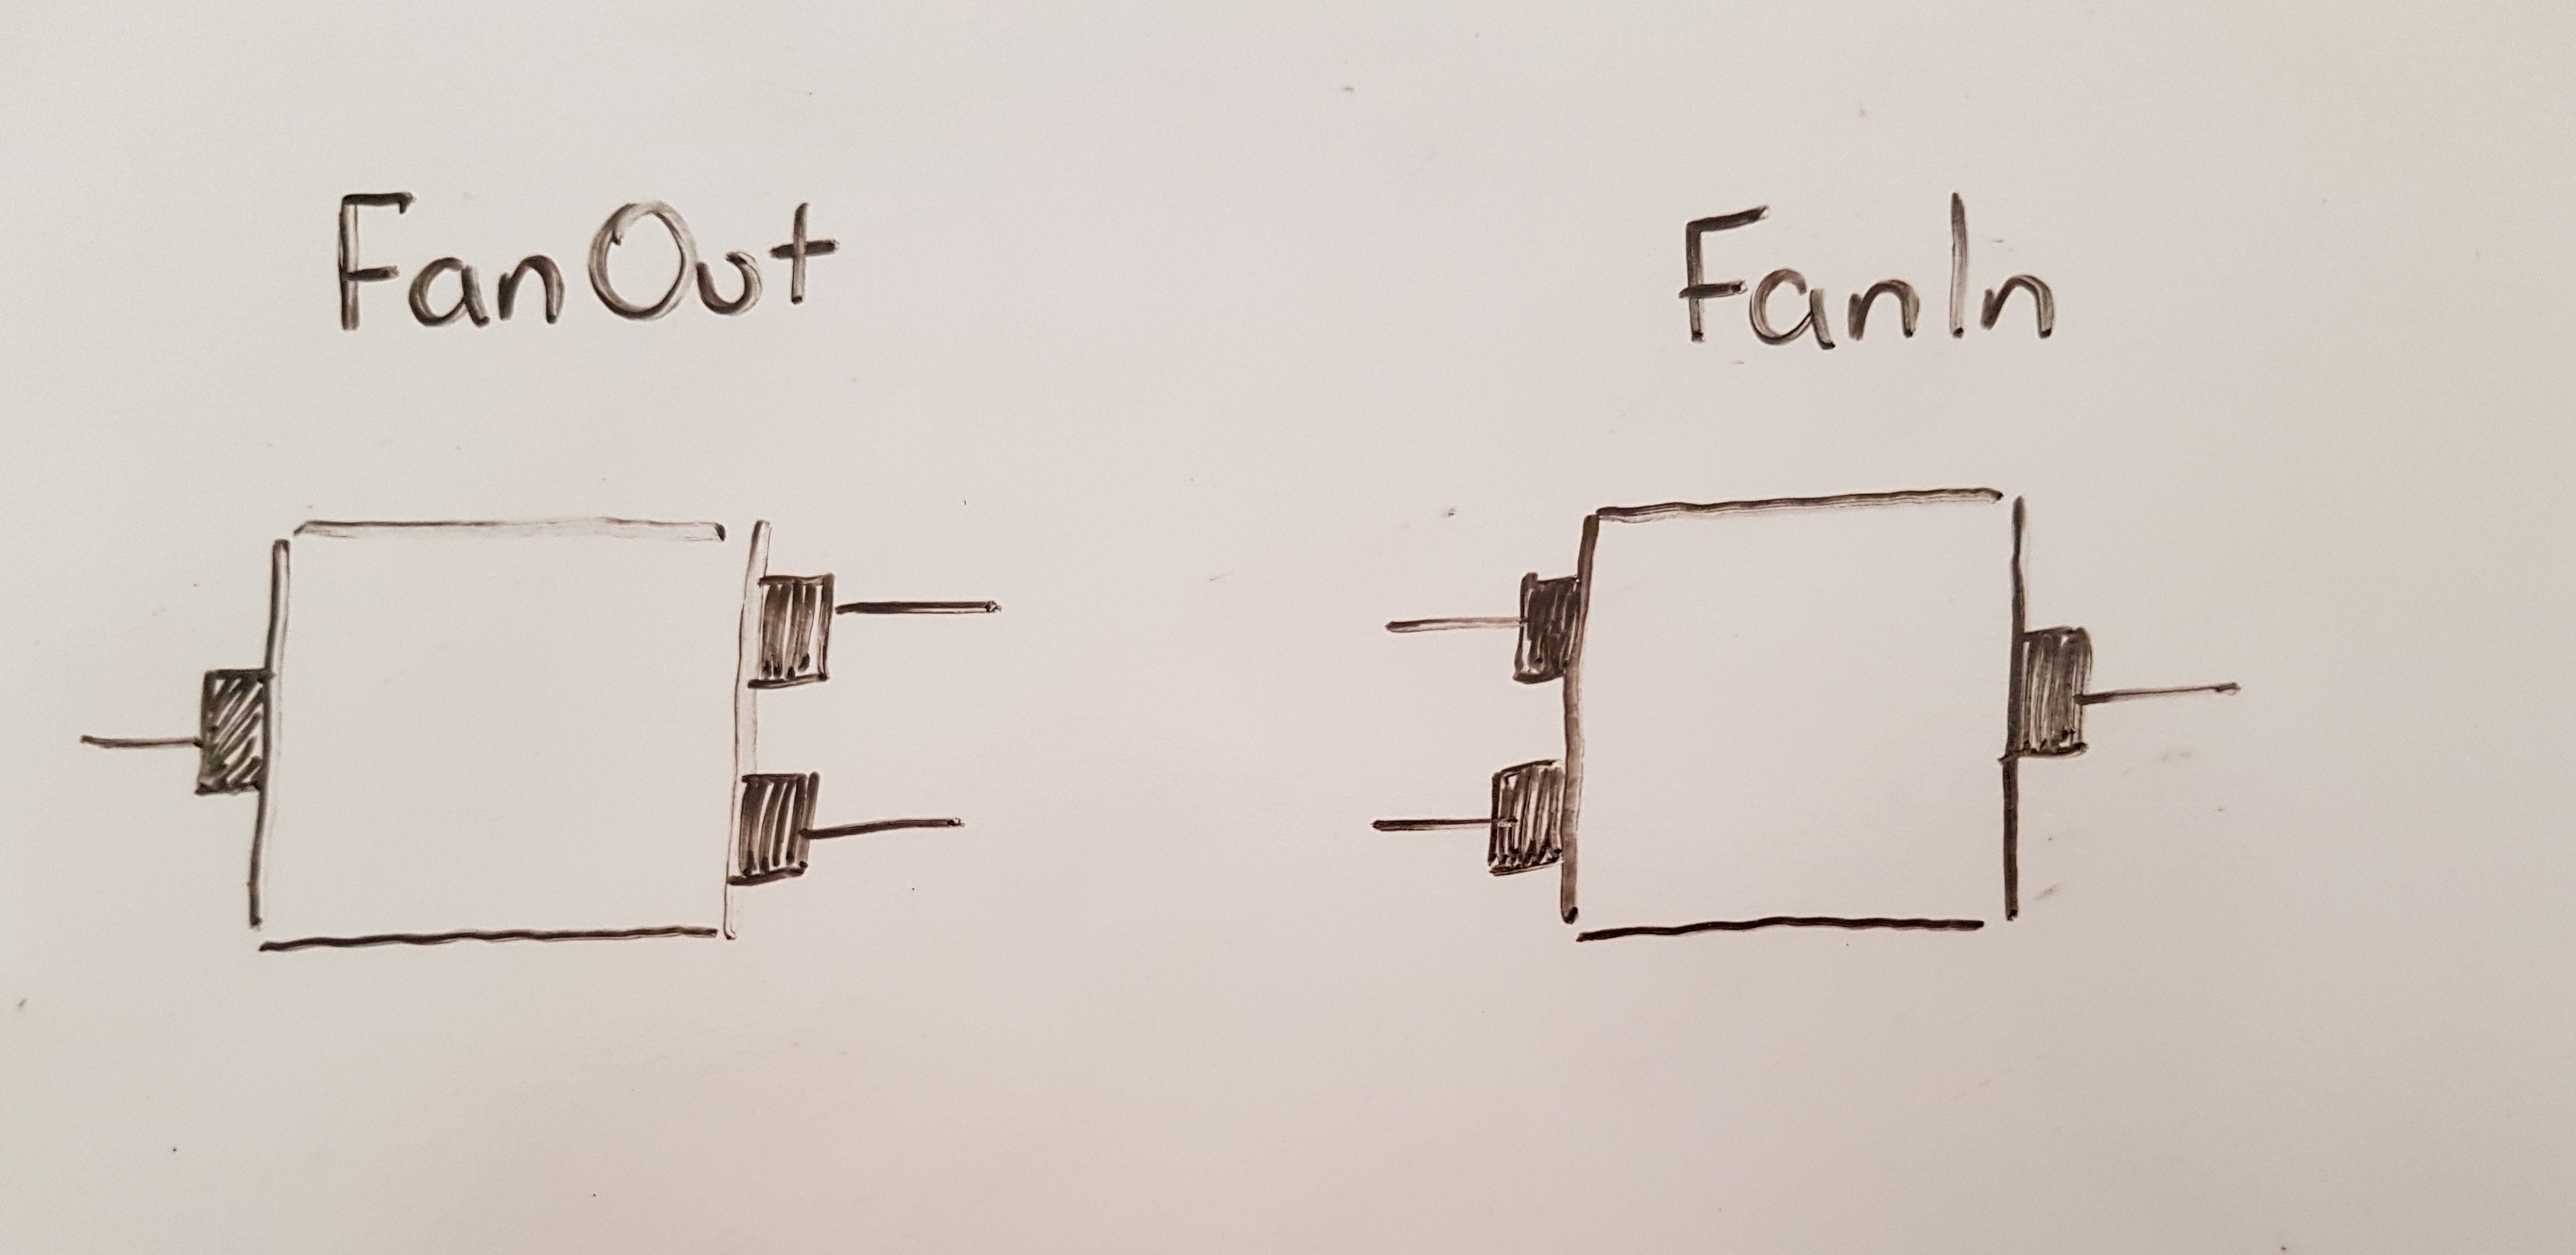 FanOut
FanIn